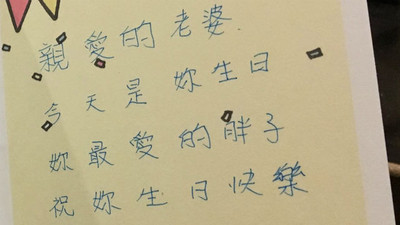 親愛的老婆.
今天是妳生日
妳最愛的胖子
祝妳生日快樂